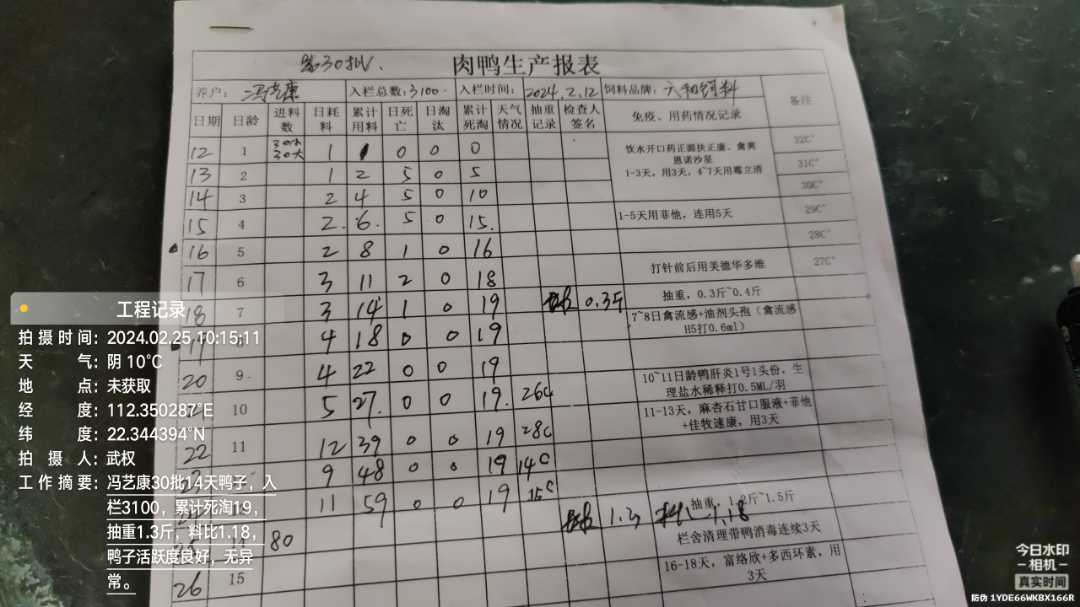 第30批、
肉鸭生产报表
养户: 冯艺康 入栏总数:3100. 入栏时间: 2024.2.12 饲料品牌: 六和饲料 备注
日期 日龄 进料数 日耗料 累计用料 日死亡 日淘汰 累计死淘 天气情况 抽重记录 检查人签名 免疫、用药情况记录
12 1 1 1 0 0 0 32C°
饮水开口药正源扶正康、禽爽
恩诺沙星
1-3天,用3天,4~7天用霉立清
13 2 1 2 5 0 5 31C°
14 3 2 4 5 0 10 30C°
15 4 2. 6. 5 0 15. 1-5天用菲他,连用5天 29C°
16 5 2 8 1 0 16 28C°
17 6 3 11 2 0 18 打针前后用美德华多维 27C°
18 7 3 14 1 0 19 0.3斤 抽重,0.3斤~0.4斤
19 4 18 0 0 19 7~8日禽流感+油剂头孢(禽流感
H5打0.6ml)
20 9 4 22 0 0 19
10 5 27. 0 0 19. 26C 10~11日龄鸭肝炎1号1头份,生
理盐水稀释打0.5ML/羽
22 11 12 39 0 0 19 28C 11-13天,麻杏石甘口服液+菲他
+佳牧速康,用3天
9 48 0 0 19 14C
11 59 0 0 19 15C
抽重,1.2斤~1.5斤
80 1.3 料比1.18
栏舍清理带鸭消毒连续3天
26 15 16-18天,富络欣+多西环素,用
3天
工程记录
拍摄时间: 2024.02.25 10:15:11
天气: 阴 10°C
地点: 未获取
经度: 112.350287°E
纬度: 22.344394°N
拍摄人: 武权
工作摘要: 冯艺康30批14天鸭子,入
栏3100,累计死淘19,
抽重1.3斤,料比1.18,
鸭子活跃度良好,无异
常。
今日水印
-相机-
真实时间
防伪 1YDE66WKBX166R